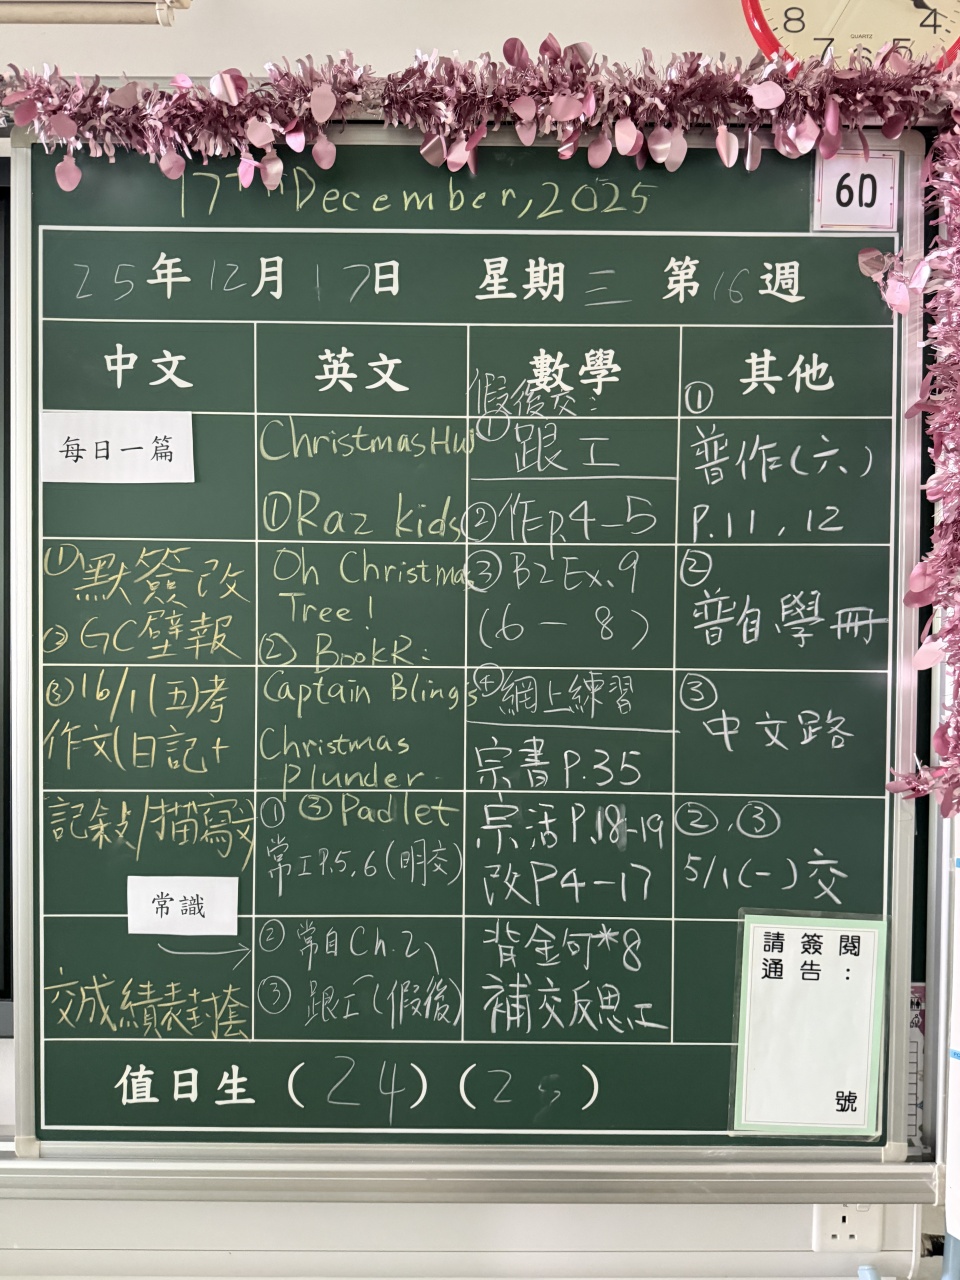 8 4
7 6 5
QUARTZ
17th December, 2025
6D
25年12月17日 星期三 第16週
中文
每日一篇
①默簽改
②GC壁報
③16/1(五)考
作文(日記+
記敍/描寫文
常識
交成績表封套
英文
Christmas HW
①Raz kids
Oh Christmas
Tree!
②BookR:
Captain Bling's
Christmas
Plunder
③Padlet
①常工P.5,6(明交)
②常自Ch.2、
③跟工(假後)
數學
假後交:
①跟工
②作p.4-5
③B2 Ex.9
(6-8)
④網上練習
宗書P.35
宗活P.18-19
改P4-17
背金句*8
補交反思工
其他
①
普作(六)
P.11, 12
②
普自學冊
③
中文路
②,③
5/1(一)交
請簽閱
通告:
號
值日生(24)(25)